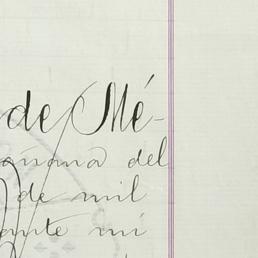 de Mé-
mañana del
de mil
ante mí